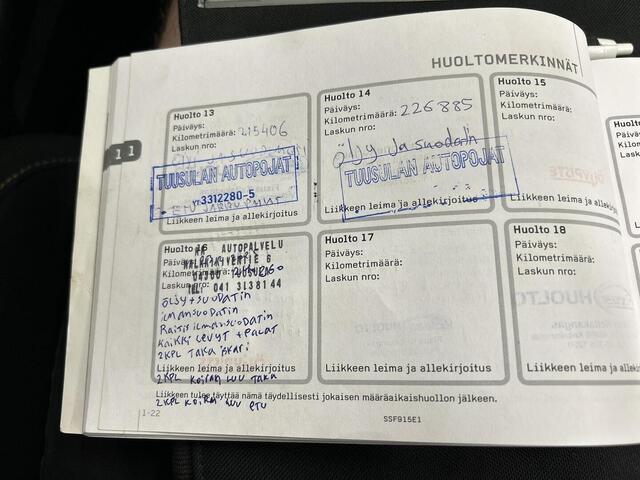 HUOLTOMERKINNÄT
11
Huolto 13
Päiväys:
Kilometrimäärä: 215406
Laskun nro:
TUUSULAN AUTOPOJAT
YT 3312280-5
ETU JARRUPALAT
Liikkeen leima ja allekirjoitus
Huolto 14
Päiväys:
Kilometrimäärä: 226885
Laskun nro:
Öljy ja suodatin
TUUSULAN AUTOPOJAT
Liikkeen leima ja allekirjoitus
Huolto 15
Päiväys:
Kilometrimäärä:
Laskun nro:
Liikkeen leima ja allekirjoitus
Huolto 16
AUTOPALVELU
Päiväys:
Kilometrimäärä:
Laskun nro:
TEL: 041 3138144
ÖLJY + SUODATIN
ILMANSUODATIN
RAITISILMANSUODATIN
KAIKKI LEVYT + PALAT
2KPL TAKA ISKARI
Liikkeen leima ja allekirjoitus
2KPL KOIRAN LUU TAKA
2KPL KOIRAN LUU ETU
Huolto 17
Päiväys:
Kilometrimäärä:
Laskun nro:
Liikkeen leima ja allekirjoitus
Huolto 18
Päiväys:
Kilometrimäärä:
Laskun nro:
Liikkeen leima ja allekirjoitus
Liikkeen tulee täyttää nämä täydellisesti jokaisen määräaikaishuollon jälkeen.
1-22
SSF915E1